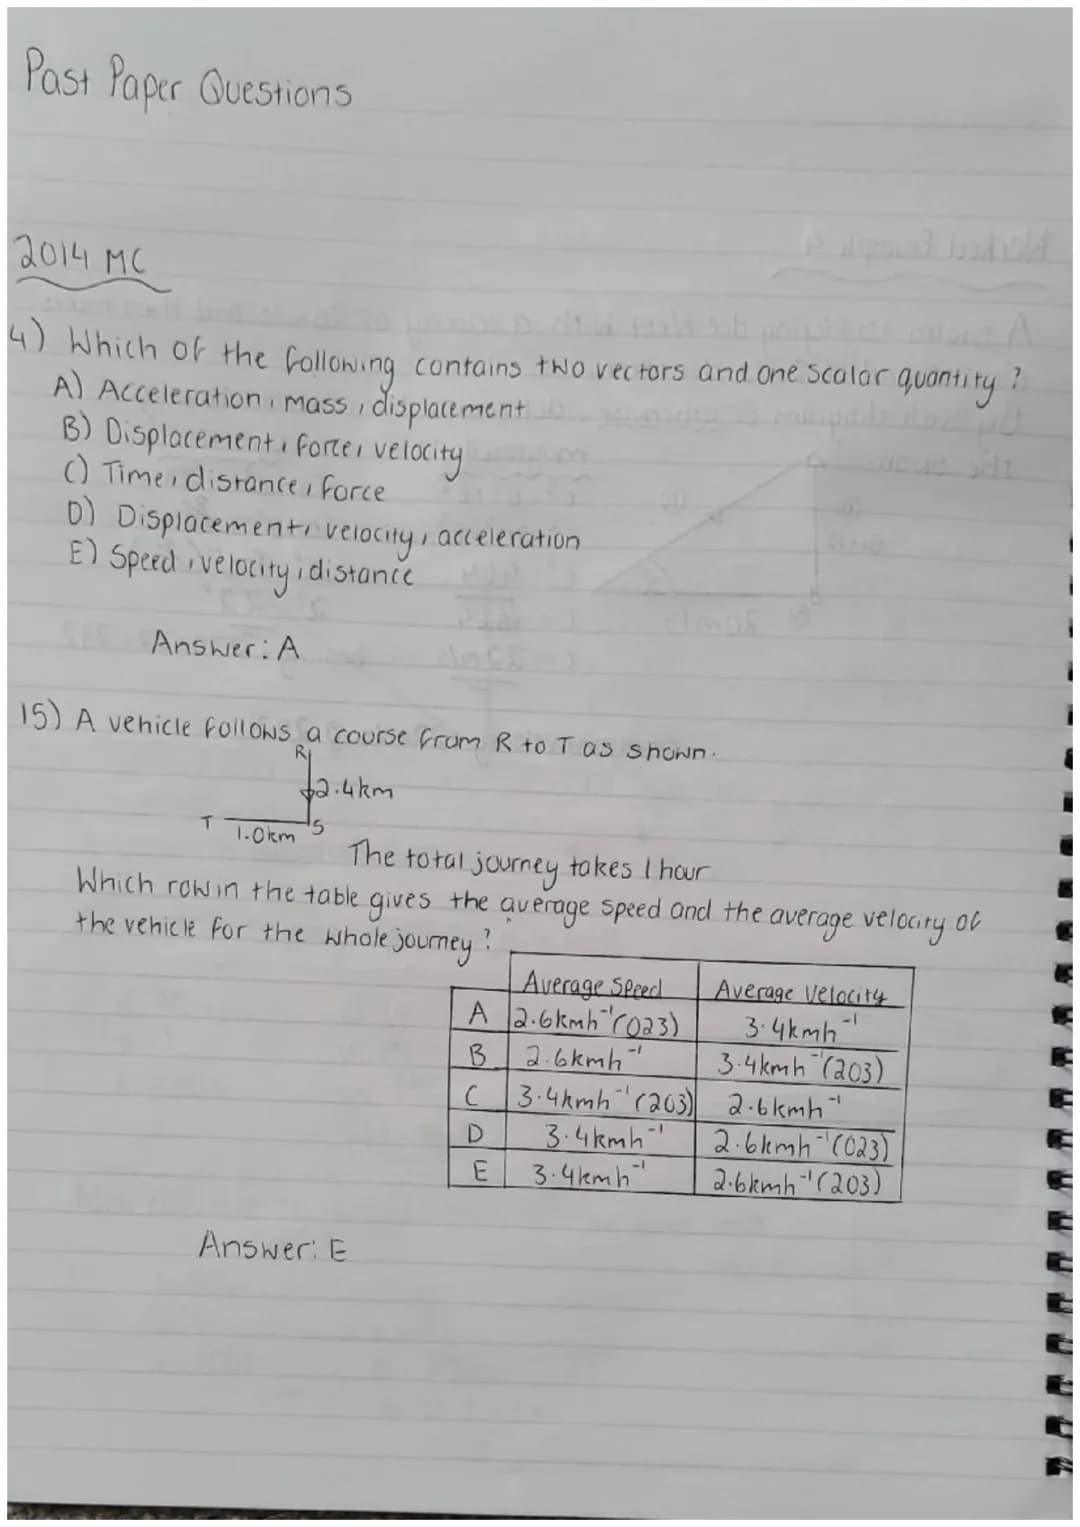 Past Paper Questions
2014 MC
4) Which of the following contains two vectors and one scalar quantity?
A) Acceleration, mass, displacement
B) Displacement, force, velocity
C) Time, distance, force
D) Displacement, velocity, acceleration
E) Speed, velocity, distance
Answer: A
15) A vehicle follows a course from R to T as shown.
R
2.4km
T 1.0km S
The total journey takes 1 hour
Which row in the table gives the average speed and the average velocity of
the vehicle for the whole journey?
Average Speed Average Velocity
A 2.6kmh⁻¹(023) 3.4kmh⁻¹
B 2.6kmh⁻¹ 3.4kmh⁻¹(203)
C 3.4kmh⁻¹(203) 2.6kmh⁻¹
D 3.4kmh⁻¹ 2.6kmh⁻¹(023)
E 3.4kmh⁻¹ 2.6kmh⁻¹(203)
Answer: E